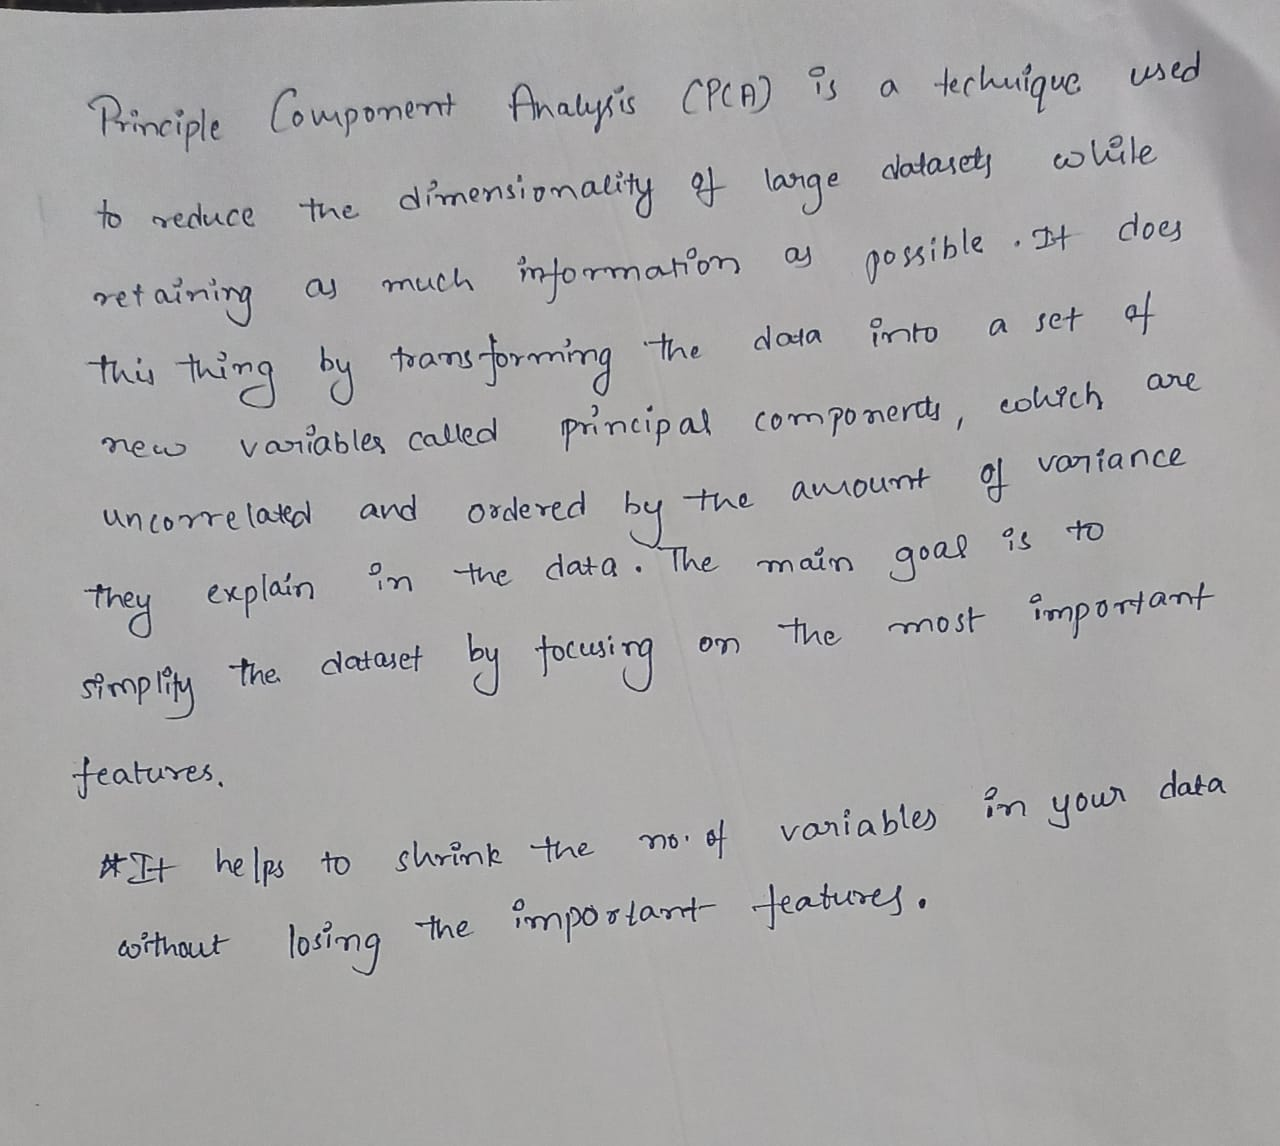 Principle Component Analysis (PCA) is a technique used
to reduce the dimensionality of large datasets while
retaining as much information as possible. It does
this thing by transforming the data into a set of
new variables called principal components, which are
uncorrelated and ordered by the amount of variance
they explain in the data. The main goal is to
simplify the dataset by focusing on the most important
features.
*It helps to shrink the no. of variables in your data
without losing the important features.